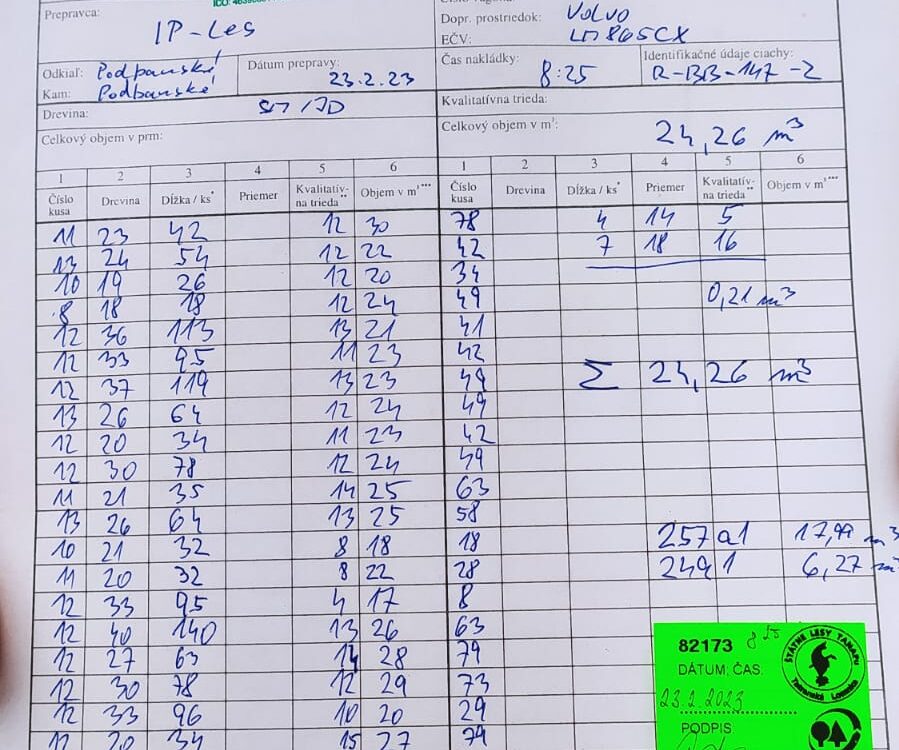 Prepravca:
IP-Les
Dopr. prostriedok: Volvo
EČV: LM865CX
Odkiaľ: Podbanské
Kam: Podbanské
Dátum prepravy:
23.2.23
Čas nakládky:
8:25
Identifikačné údaje ciachy:
R-BB-147-2
Drevina: SM/JD
Kvalitatívna trieda:
Celkový objem v prm:
Celkový objem v m³:
24,26 m³
1 2 3 4 5 6 1 2 3 4 5 6
Číslo kusa Drevina Dĺžka / ks* Priemer Kvalitatívna trieda** Objem v m³*** Číslo kusa Drevina Dĺžka / ks* Priemer Kvalitatívna trieda** Objem v m³***
11 23 42 12 30 78 4 14 5
13 24 54 12 22 42 7 18 16
10 19 26 12 20 34
8 18 18 12 24 49 0,21 m³
12 36 113 13 21 41
12 33 95 11 23 42
12 37 119 13 23 49 Σ 24,26 m³
13 26 64 12 24 49
12 20 34 11 23 42
12 30 78 12 24 49
11 21 35 14 25 63
13 26 64 13 25 58
10 21 32 8 18 18 257a1 17,99 m³
11 20 32 8 22 28 249 1 6,27 m³
12 33 95 4 17 8
12 40 140 13 26 63
12 27 63 14 28 79
12 30 78 12 29 73
12 33 96 10 20 29
12 20 34 15 27 79
82173 8 25
DÁTUM, ČAS.
23.2.2023
PODPIS
ŠTÁTNE LESY TANAPU
Tatranská Lomnica